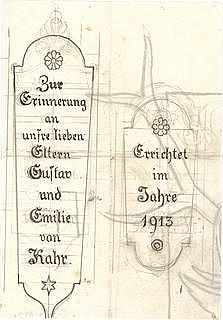 Zur
Erinnerung
an
unsre lieben
Eltern
Gustav
und
Emilie
von
Kahr.
Errichtet
im
Jahre
1913